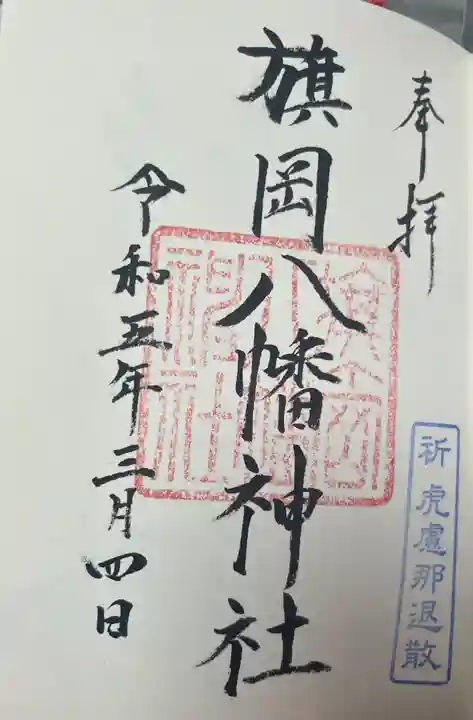 奉拝
祈虎慮那退散
旗岡八幡神社
令和五年三月四日